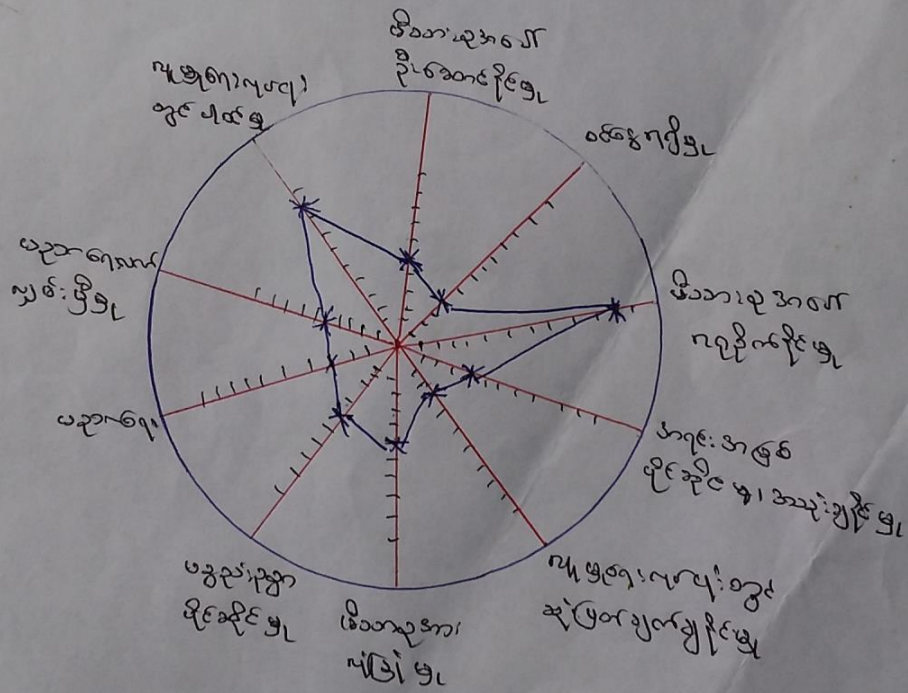 မိသားစုအပေါ်
ဦးဆောင်နိုင်မှု
ဝင်ငွေရရှိမှု
မိသားစုအပေါ်
ဂရုစိုက်နိုင်မှု
အရင်းအမြစ်
ပိုင်ဆိုင်မှု၊ အသုံးချနိုင်မှု
လူမှုရေးလုပ်ငန်းတွင်
ဆုံးဖြတ်ချက်ချနိုင်မှု
မိသားစုအား
လုံခြုံမှု
ပစ္စည်းဥစ္စာ
ပိုင်ဆိုင်မှု
ပညာရေး
လူမှုရေးလုပ်ငန်း
တွင်ပါဝင်မှု